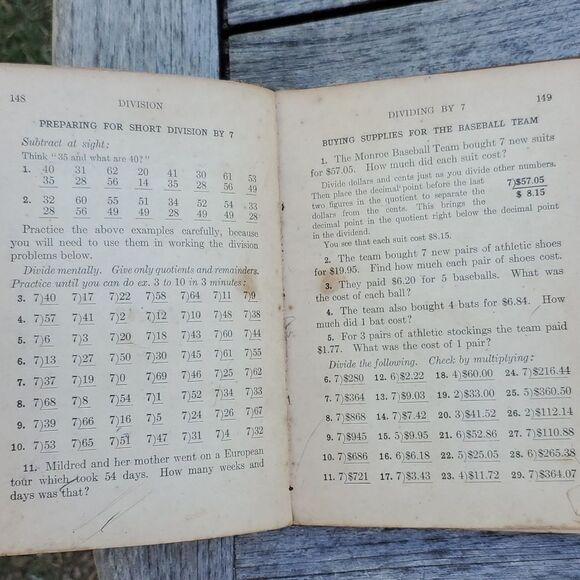 148
DIVISION
PREPARING FOR SHORT DIVISION BY 7
Subtract at sight:
Think "35 and what are 40?"
1. 40 31 62 20 41 30 61 53
35 28 56 14 35 28 56 49
2. 32 60 55 51 34 52 54 33
28 56 49 49 28 49 49 28
Practice the above examples carefully, because
you will need to use them in working the division
problems below.
Divide mentally. Give only quotients and remainders.
Practice until you can do ex. 3 to 10 in 3 minutes:
3. 7)40 7)17 7)22 7)58 7)64 7)11 7)9
4. 7)57 7)41 7)2 7)12 7)10 7)48 7)38
5. 7)6 7)3 7)20 7)18 7)43 7)60 7)44
6. 7)13 7)27 7)50 7)30 7)45 7)61 7)55
7. 7)37 7)19 7)0 7)69 7)46 7)25 7)62
8. 7)68 7)8 7)54 7)1 7)52 7)34 7)33
9. 7)39 7)66 7)16 7)5 7)24 7)26 7)67
10. 7)53 7)65 7)51 7)47 7)31 7)4 7)32
11. Mildred and her mother went on a European
tour which took 54 days. How many weeks and
days was that?
DIVIDING BY 7
149
BUYING SUPPLIES FOR THE BASEBALL TEAM
1. The Monroe Baseball Team bought 7 new suits
for $57.05. How much did each suit cost?
Divide dollars and cents just as you divide other numbers.
Then place the decimal point before the last
two figures in the quotient to separate the
dollars from the cents. This brings the
decimal point in the quotient right below the decimal point
in the dividend.
7)$57.05
$ 8.15
You see that each suit cost $8.15.
2. The team bought 7 new pairs of athletic shoes
for $19.95. Find how much each pair of shoes cost.
3. They paid $6.20 for 5 baseballs. What was
the cost of each ball?
4. The team also bought 4 bats for $6.84. How
much did 1 bat cost?
5. For 3 pairs of athletic stockings the team paid
$1.77. What was the cost of 1 pair?
Divide the following. Check by multiplying:
6. 7)$280 12. 6)$2.22 18. 4)$60.00 24. 7)$216.44
7. 7)$364 13. 7)$9.03 19. 2)$33.00 25. 5)$360.50
8. 7)$868 14. 7)$7.42 20. 3)$41.52 26. 2)$112.14
9. 7)$945 15. 5)$9.95 21. 6)$52.86 27. 7)$110.88
10. 7)$686 16. 6)$6.18 22. 5)$25.05 28. 6)$265.38
11. 7)$721 17. 7)$3.43 23. 4)$11.72 29. 7)$364.07